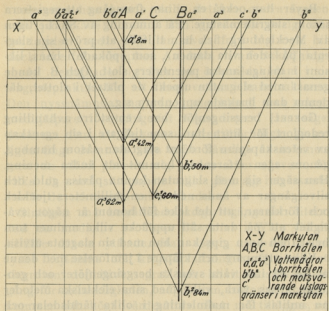 a³ b²a²c¹ b¹a¹ A a¹ C B a² a³ c¹ b¹ b²
X Y
a¹,8m
a²,42m
b¹,50m
c¹,60m
a³,62m
b²,84m
X-Y Markytan
A,B,C Borrhålen
a¹a²a³ Vattenådror
b¹b² i borrhålen
och motsva-
c¹ rande utslags-
gränser i markytan